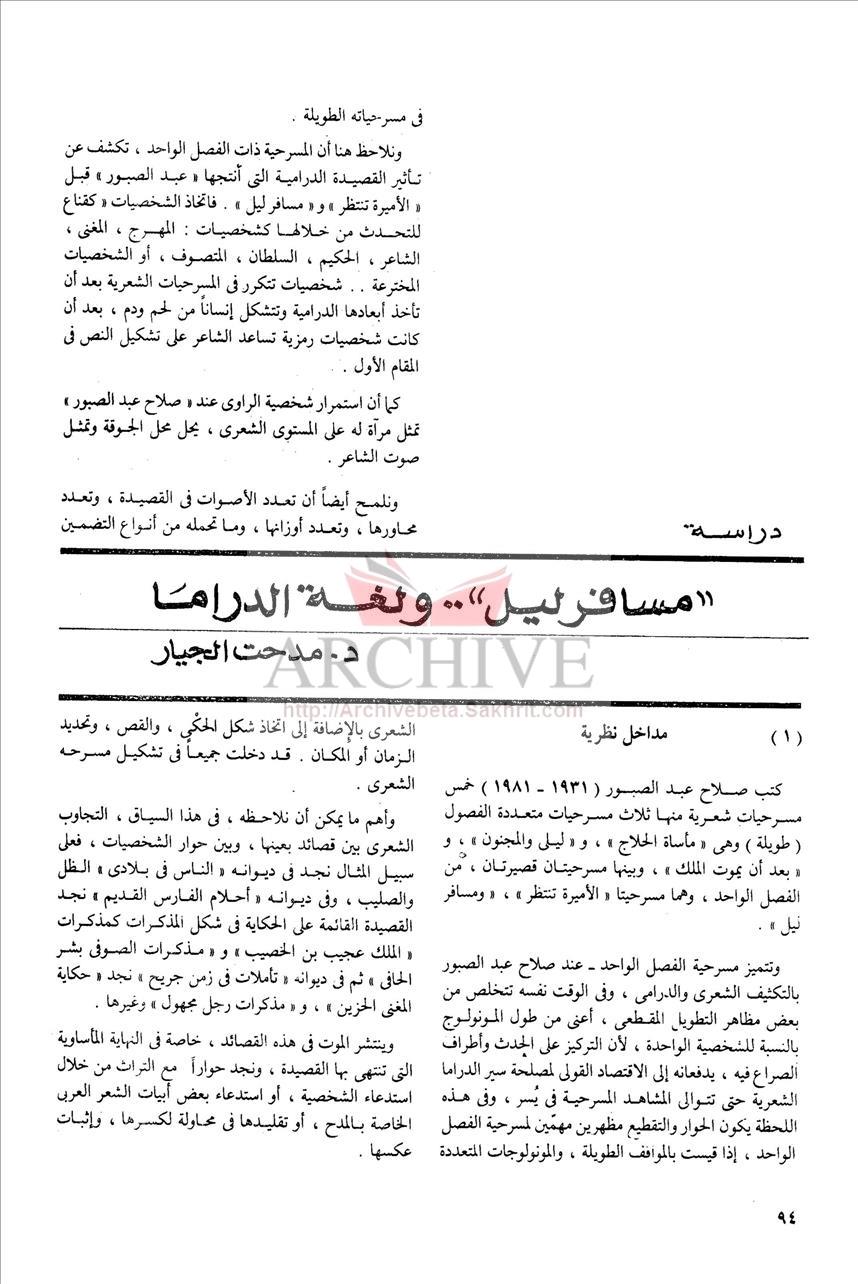 دراسة
«مسافر ليل».. ولغة الدراما
د. مدحت الجيار
ARCHIVE
http://Archivebeta.Sakhrit.com
(١) مداخل نظرية
كتب صلاح عبد الصبور (١٩٣١ - ١٩٨١) خمس
مسرحيات شعرية منها ثلاث مسرحيات متعددة الفصول
(طويلة) وهى «مأساة الحلاج» ، و «ليلى والمجنون» ، و
«بعد أن يموت الملك» ، وبينها مسرحيتان قصيرتان ، من
الفصل الواحد ، وهما مسرحيتا «الأميرة تنتظر» ، «ومسافر
ليل» .
وتتميز مسرحية الفصل الواحد ـ عند صلاح عبد الصبور
بالتكثيف الشعرى والدرامى ، وفى الوقت نفسه تتخلص من
بعض مظاهر التطويل المقطعى ، أعنى من طول المونولوج
بالنسبة للشخصية الواحدة ، لأن التركيز على الحدث وأطراف
الصراع فيه ، يدفعانه إلى الاقتصاد القولى لمصلحة سير الدراما
الشعرية حتى تتوالى المشاهد المسرحية فى يُسر ، وفى هذه
اللحظة يكون الحوار والتقطيع مظهرين مهمّين لمسرحية الفصل
الواحد ، إذا قيست بالمواقف الطويلة ، والمونولوجات المتعددة
فى مسرحياته الطويلة .
ونلاحظ هنا أن المسرحية ذات الفصل الواحد ، تكشف عن
تأثير القصيدة الدرامية التى أنتجها «عبد الصبور» قبل
«الأميرة تنتظر» و «مسافر ليل» . فاتخاذ الشخصيات «كقناع
للتحدث من خلالها كشخصيات : المهرج ، المغنى ،
الشاعر ، الحكيم ، السلطان ، المتصوف ، أو الشخصيات
المخترعة . . شخصيات تتكرر فى المسرحيات الشعرية بعد أن
تأخذ أبعادها الدرامية وتتشكل إنساناً من لحم ودم ، بعد أن
كانت شخصيات رمزية تساعد الشاعر على تشكيل النص فى
المقام الأول .
كما أن استمرار شخصية الراوى عند «صلاح عبد الصبور»
تمثل مرآة له على المستوى الشعرى ، يحل محل الجوقة وتمثل
صوت الشاعر .
ونلمح أيضاً أن تعدد الأصوات فى القصيدة ، وتعدد
محاورها ، وتعدد أوزانها ، وما تحمله من أنواع التضمين
الشعرى بالإضافة إلى اتخاذ شكل الحكْى ، والقص ، وتحديد
الزمان أو المكان . قد دخلت جميعاً فى تشكيل مسرحه
الشعرى .
وأهم ما يمكن أن نلاحظه ، فى هذا السياق ، التجاوب
الشعرى بين قصائد بعينها ، وبين حوار الشخصيات ، فعلى
سبيل المثال نجد فى ديوانه «الناس فى بلادى» الظل
والصليب ، وفى ديوانه «أحلام الفارس القديم» نجد
القصيدة القائمة على الحكاية فى شكل المذكرات كمذكرات
«الملك عجيب بن الخصيب» و «مذكرات الصوفى بشر
الحافى» ثم فى ديوانه «تأملات فى زمن جريح» نجد «حكاية
المغنى الحزين» ، و «مذكرات رجل مجهول» وغيرها .
وينتشر الموت فى هذه القصائد ، خاصة فى النهاية المأساوية
التى تنتهى بها القصيدة ، ونجد حواراً مع التراث من خلال
استدعاء الشخصية ، أو استدعاء بعض أبيات الشعر العربى
الخاصة بالمدح ، أو تقليدها فى محاولة لكسرها ، وإثبات
عكسها .
٩٤